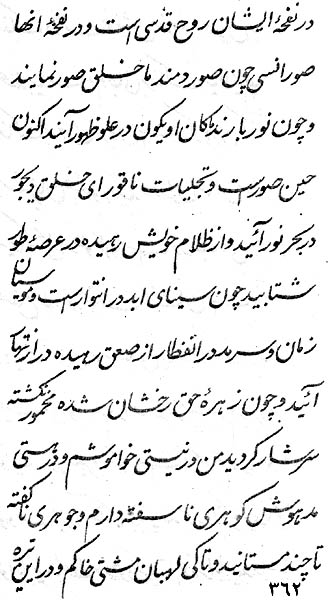 در نفخهٔ ایشان روح قدسی است و در نفخهٔ انها
صور انسی چون صور دمند ما خلق صور نمایند
و چون نور بارند ماکان او یکون در علو ظهور آیند اکنون
حین صور است و تجلیات ناقور ای خلق دیجور
در بحر نور آئید و از ظلام خویش رهیده در عرصهٔ طور
شتابید چون سینای ابد در انتوار است و موسیان
زمان و سرمد در انفطار از صعق رهیده در ارتقا
آئید و چون زهرهٔ حق رخشان شده مخمور نکشته
سرشار کردید من در نیستی خواموشم و در هستی
مدهوش کوهری ناسفته دارم و جوهری ناکفته
تا چند مستانید و تا کی لهبان مشتی خاکم و در این تیره
۳۶۲